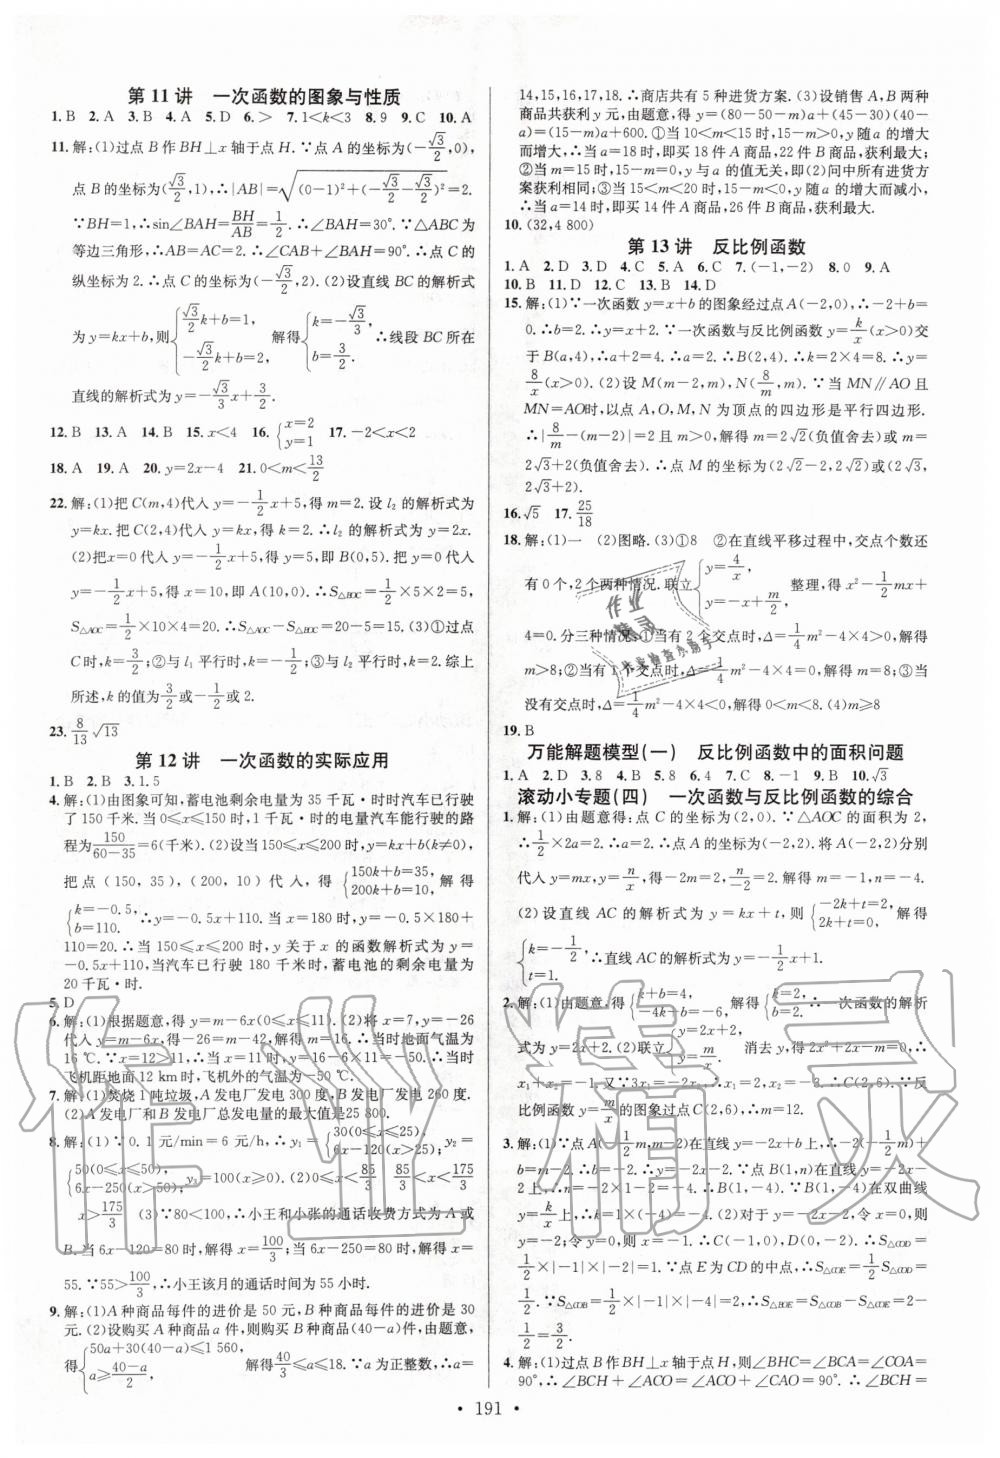 第 11 讲　一次函数的图象与性质
1. B　2. A　3. B　4. A　5. D　6. >　7. 1<k<3　8. 9　9. C　10. A
11. 解:(1)过点 B 作 BH⊥x 轴于点 H. ∵点 A 的坐标为(-√3/2,0),
点 B 的坐标为(√3/2,1),∴|AB|=√((0-1)²+(-√3/2-√3/2)²)=2.
∵BH=1,∴sin∠BAH=BH/AB=1/2. ∴∠BAH=30°. ∵△ABC 为
等边三角形,∴AB=AC=2. ∴∠CAB+∠BAH=90°. ∴点 C 的
纵坐标为 2. ∴点 C 的坐标为(-√3/2,2). (2)设直线 BC 的解析式
为 y=kx+b,则{√3/2 k+b=1, -√3/2 k+b=2, 解得{k=-√3/3, b=3/2. ∴线段 BC 所在
直线的解析式为 y=-√3/3 x+3/2.
12. B　13. A　14. B　15. x<4　16. {x=2 y=1　17. -2<x<2
18. A　19. A　20. y=2x-4　21. 0<m<13/2
22. 解:(1)把 C(m,4)代入 y=-1/2 x+5,得 m=2. 设 l₂ 的解析式为
y=kx. 把 C(2,4)代入 y=kx,得 k=2. ∴l₂ 的解析式为 y=2x.
(2)把 x=0 代入 y=-1/2 x+5,得 y=5,即 B(0,5). 把 y=0 代入 y=
-1/2 x+5,得 x=10,即 A(10,0). ∴S△BOC=1/2×5×2=5,
S△AOC=1/2×10×4=20. ∴S△AOC-S△BOC=20-5=15. (3)①过点
C 时,k=3/2;②与 l₂ 平行时,k=2;③与 l₁ 平行时,k=-1/2. 综上
所述,k 的值为3/2或-1/2或2.
23. 8/13 √13
第 12 讲　一次函数的实际应用
1. B　2. B　3. 1.5
4. 解:(1)由图象可知,蓄电池剩余电量为 35 千瓦·时时汽车已行驶
了 150 千米. 当 0≤x≤150 时,1 千瓦·时的电量汽车能行驶的路
程为150/(60-35)=6(千米). (2)设当 150≤x≤200 时,y=kx+b(k≠0),
把 点 (150, 35), (200, 10) 代 入, 得 {150k+b=35, 200k+b=10, 解 得
{k=-0.5, b=110. ∴y=-0.5x+110. 当 x=180 时,y=-0.5×180+
110=20. ∴当 150≤x≤200 时,y 关于 x 的函数解析式为 y=
-0.5x+110,当汽车已行驶 180 千米时,蓄电池的剩余电量为
20 千瓦·时.
5. D
6. 解:(1)根据题意,得 y=m-6x(0≤x≤11). (2)将 x=7,y=-26
代入 y=m-6x,得-26=m-42,解得 m=16. ∴当时地面气温为
16 ℃. ∵x=12>11,∴当 x=11 时,y=16-6×11=-50. ∴当时
飞机距地面 12 km 时,飞机外的气温为-50 ℃.
7. 解:(1)焚烧 1 吨垃圾,A 发电厂发电 300 度,B 发电厂发电 260 度.
(2)A 发电厂和 B 发电厂总发电量的最大值是 25 800.
8. 解:(1)∵0.1 元/min=6 元/h,∴y₁={30(0≤x≤25), 6x-120(x>25); y₂=
{50(0≤x≤50), 6x-250(x>50); y₃=100(x≥0). (2)0≤x<85/3　85/3<x<175/3
x>175/3　(3)∵80<100,∴小王和小张的通话收费方式为 A 或
B. 当 6x-120=80 时,解得 x=100/3;当 6x-250=80 时,解得 x=
55. ∵55>100/3,∴小王该月的通话时间为 55 小时.
9. 解:(1)A 种商品每件的进价是 50 元,B 种商品每件的进价是 30
元. (2)设购买 A 种商品 a 件,则购买 B 种商品(40-a)件,由题意,
得{50a+30(40-a)≤1 560, a≥(40-a)/2, 解得40/3≤a≤18. ∵a 为正整数,∴a=
14,15,16,17,18. ∴商店共有 5 种进货方案. (3)设销售 A,B 两种
商品共获利 y 元,由题意,得 y=(80-50-m)a+(45-30)(40-
a)=(15-m)a+600. ①当 10<m<15 时,15-m>0,y 随 a 的增大
而增大,∴当 a=18 时,即买 18 件 A 商品,22 件 B 商品,获利最大;
②当 m=15 时,15-m=0,y 与 a 的值无关,即(2)问中所有进货方
案获利相同;③当 15<m<20 时,15-m<0,y 随 a 的增大而减小,
∴当 a=14 时,即买 14 件 A 商品,26 件 B 商品,获利最大.
10. (32,4 800)
第 13 讲　反比例函数
1. A　2. D　3. D　4. C　5. A　6. C　7. (-1,-2)　8. 0　9. A
10. B　11. D　12. C　13. B　14. D
15. 解:(1)∵一次函数 y=x+b 的图象经过点 A(-2,0),∴-2+b=
0. ∴b=2. ∴y=x+2. ∵一次函数与反比例函数 y=k/x(x>0)交
于 B(a,4),∴a+2=4. ∴a=2. ∴B(2,4). ∴k=2×4=8. ∴y=
8/x(x>0). (2)设 M(m-2,m),N(8/m,m). ∵当 MN∥AO 且
MN=AO时,以点 A,O,M,N 为顶点的四边形是平行四边形.
∴|8/m-(m-2)|=2 且 m>0,解得 m=2√2(负值舍去)或 m=
2√3+2(负值舍去). ∴点 M 的坐标为(2√2-2,2√2)或(2√3,
2√3+2).
16. √5　17. 25/18
18. 解:(1)一　(2)图略. (3)①8　②在直线平移过程中,交点个数还
有 0 个,2 个两种情况. 联立{y=4/x, y=-x+m/2, 整理,得 x²-1/2 mx+
4=0. 分三种情况:①当有 2 个交点时,Δ=1/4 m²-4×4>0,解得
m>8;②当有 1 个交点时,Δ=1/4 m²-4×4=0,解得 m=8;③当
没有交点时,Δ=1/4 m²-4×4<0,解得 0<m<8. (4)m≥8
19. B
万能解题模型(一)　反比例函数中的面积问题
1. A　2. D　3. 8　4. B　5. 8　6. 4　7. C　8. -1　9. B　10. √3
滚动小专题(四)　一次函数与反比例函数的综合
1. 解:(1)由题意得:点 C 的坐标为(2,0). ∵△AOC 的面积为 2,
∴1/2×2a=2. ∴a=2. ∴点 A 的坐标为(-2,2). 将 A(-2,2)分别
代入 y=mx,y=n/x,得-2m=2,n/-2=2,解得 m=-1,n=-4.
(2)设直线 AC 的解析式为 y=kx+t,则{-2k+t=2, 2k+t=0, 解得
{k=-1/2, t=1. ∴直线 AC 的解析式为 y=-1/2 x+1.
2. 解:(1)由题意,得{k+b=4, -4k+b=-6, 解得{k=2, b=2. ∴一次函数的解析
式为 y=2x+2. (2)联立{y=2x+2, y=m/x. 消去 y,得 2x²+2x-m=0. ∴
x₁+x₂=-1. 又∵3x₁... x₁=2,x₂=-3. ∴C(2,6). ∵反
比例函数 y=m/x 的图象过点 C(2,6),∴m=12.
3. 解:(1)∵点 A(-1/2 m,m-2)在直线 y=-2x+b 上,∴-2(-1/2 m)+
b=m-2. ∴b=-2. ∴y=-2x-2. ∵点 B(1,n)在直线 y=-2x-
2上,∴n=-2×1-2=-4. ∴B(1,-4). ∵B(1,-4)在双曲线
y=k/x 上,∴k=1×(-4)=-4. (2)∵直线 y=-2x-2,令 x=0,则
y=-2;令 y=0,则 x=-1. ∴C(-1,0),D(0,-2). ∴S△COD=
1/2×|-1|×|-2|=1. ∵点 E 为 CD 的中点,∴S△COE=1/2 S△COD=
1/2. ∵S△COB=1/2×|-1|×|-4|=2,∴S△BOE=S△COB-S△COE=2-
1/2=3/2.
4. 解:(1)过点 B 作 BH⊥x 轴于点 H,则∠BHC=∠BCA=∠COA=
90°. ∴∠BCH+∠ACO=∠ACO+∠CAO=90°. ∴∠BCH=
· 191 ·
作业精灵